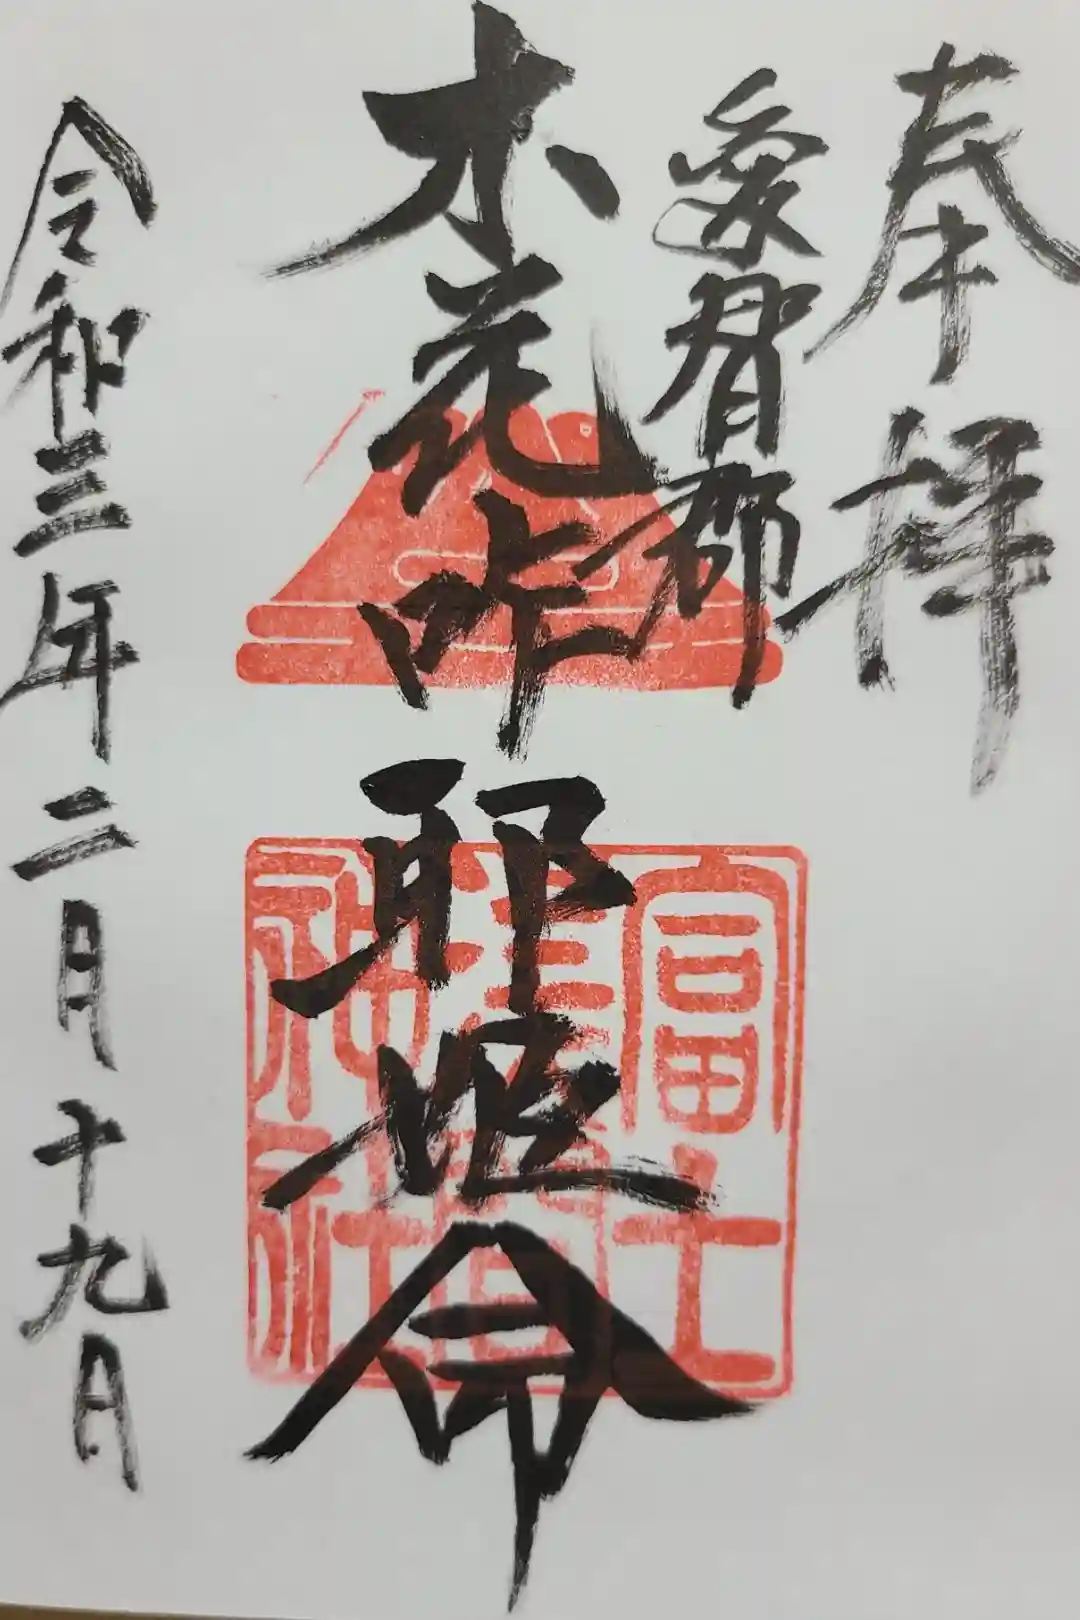 奉拝
愛智郡
木花咋耶姫命
富士
淺間
神社
令和三年二月十九日